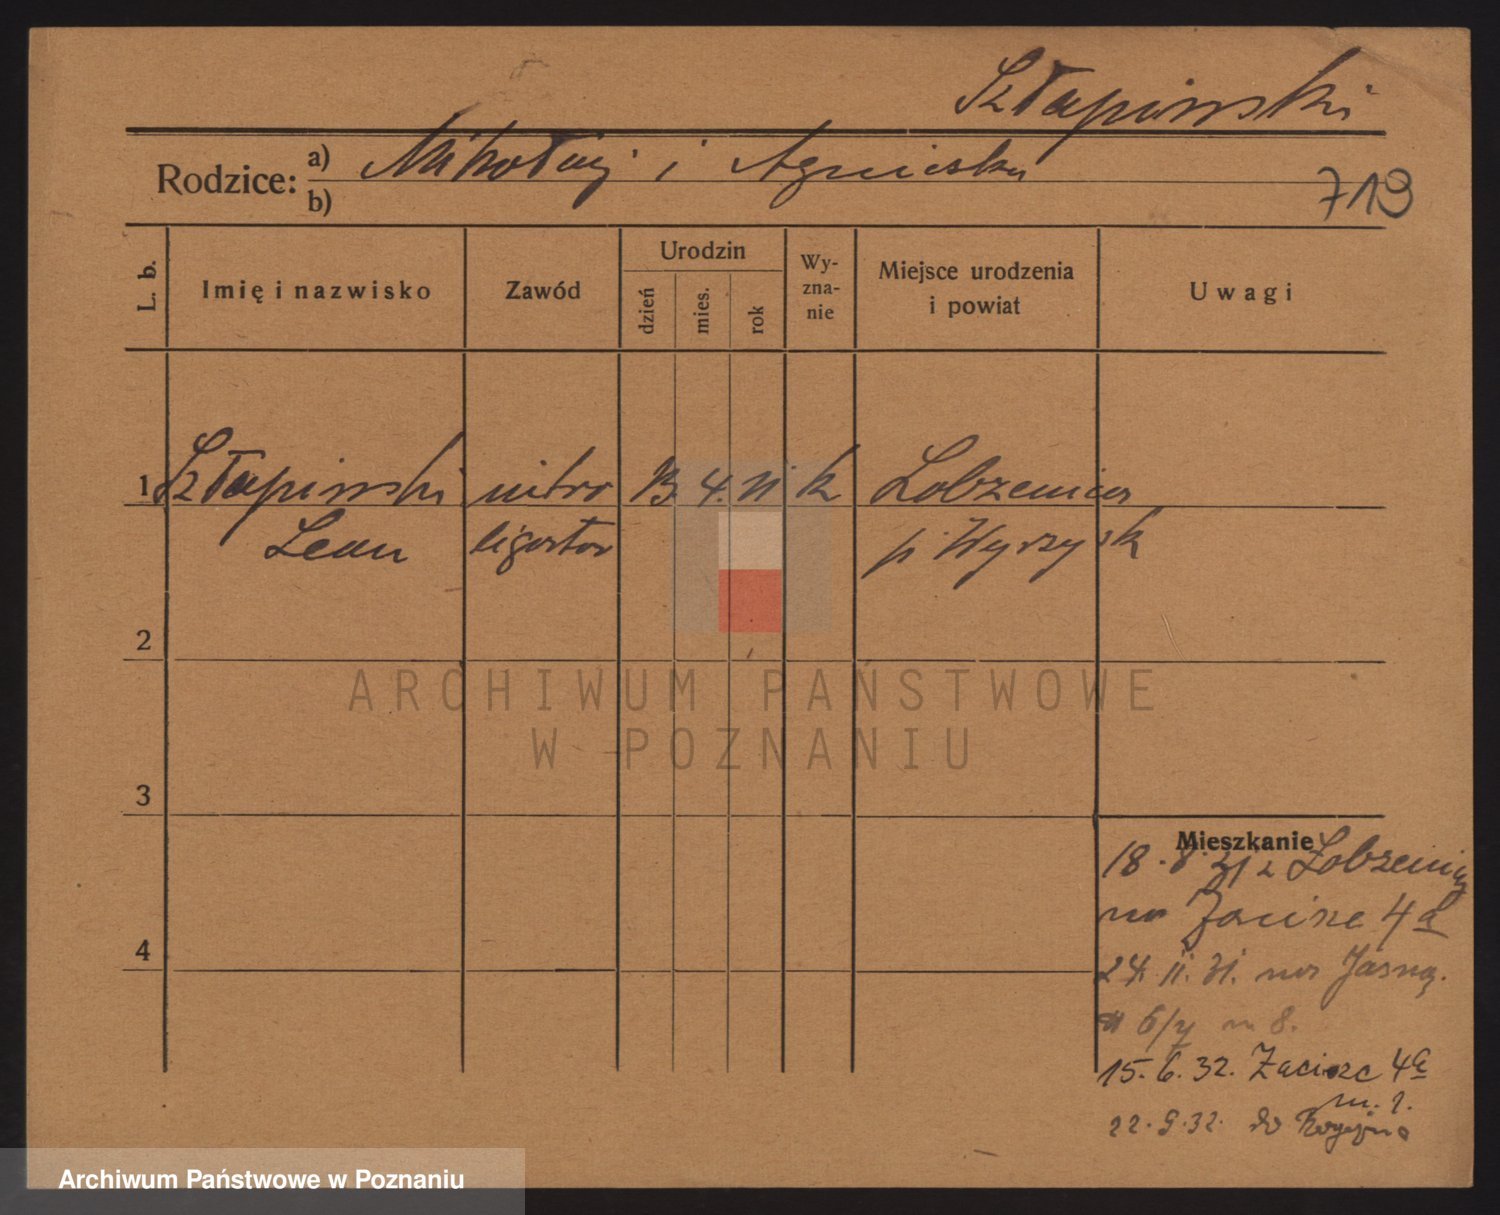 Szłapiński
Rodzice: a) Mikołaj i Agnieszka
b)
719
L. b.
Imię i nazwisko
Zawód
Urodzin
dzień
mies.
rok
Wy-
zna-
nie
Miejsce urodzenia
i powiat
Uwagi
1 Szłapiński intro 13 4. 11 k Łobżenica
Leon ligator p. Wyrzysk
2
ARCHIWUM PAŃSTWOWE
W POZNANIU
3
Mieszkanie
18. 8. 31 z Łobżenicy
na Zacisze 4a
4
24. 11. 31. na Jasną.
6/7 m 8.
15. 6. 32. Zacisze 4a
m. 1.
22. 9. 32. do
Archiwum Państwowe w Poznaniu